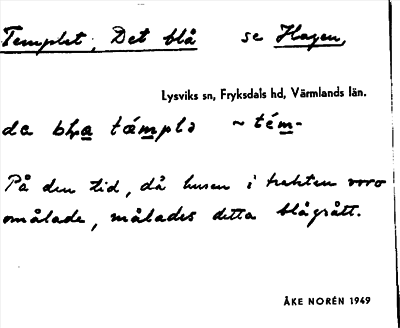 Templet, Det blå se Hagen,
Lysviks sn, Fryksdals hd, Värmlands län.
da bḷa tämplə ~ tém-
På den tid, då husen i trakten voro
omålade, målades detta blågrått.
ÅKE NORÉN 1949